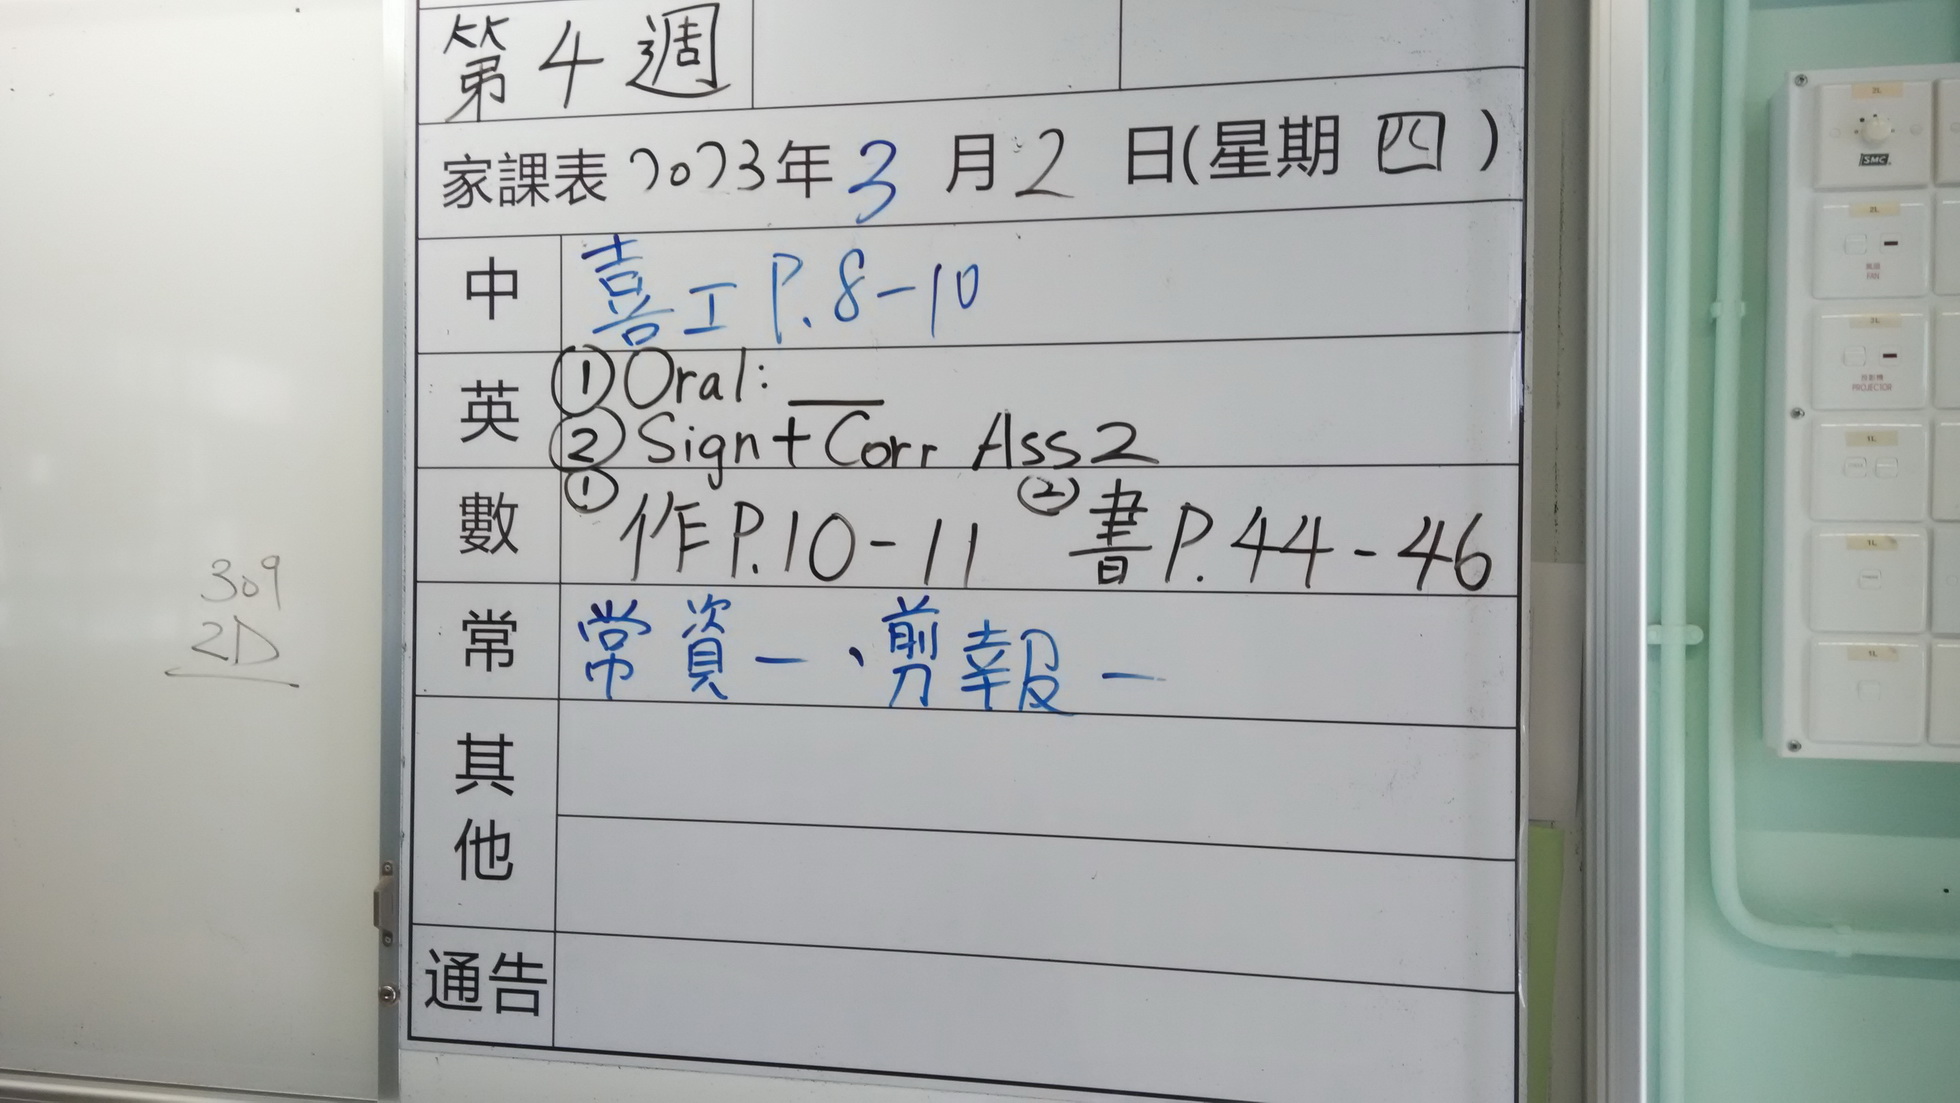 第4週
家課表 2023年 3 月 2 日(星期 四 )
中 喜工 P.8-10
英 ① Oral: __
② Sign + Corr Ass 2
數 ① 作 P.10-11 ② 書 P.44-46
常 常資一、剪報一
其他
通告
309
2D
SMC
2L
2L
風扇
FAN
2L
投影機
PROJECTOR
1L
1L
1L